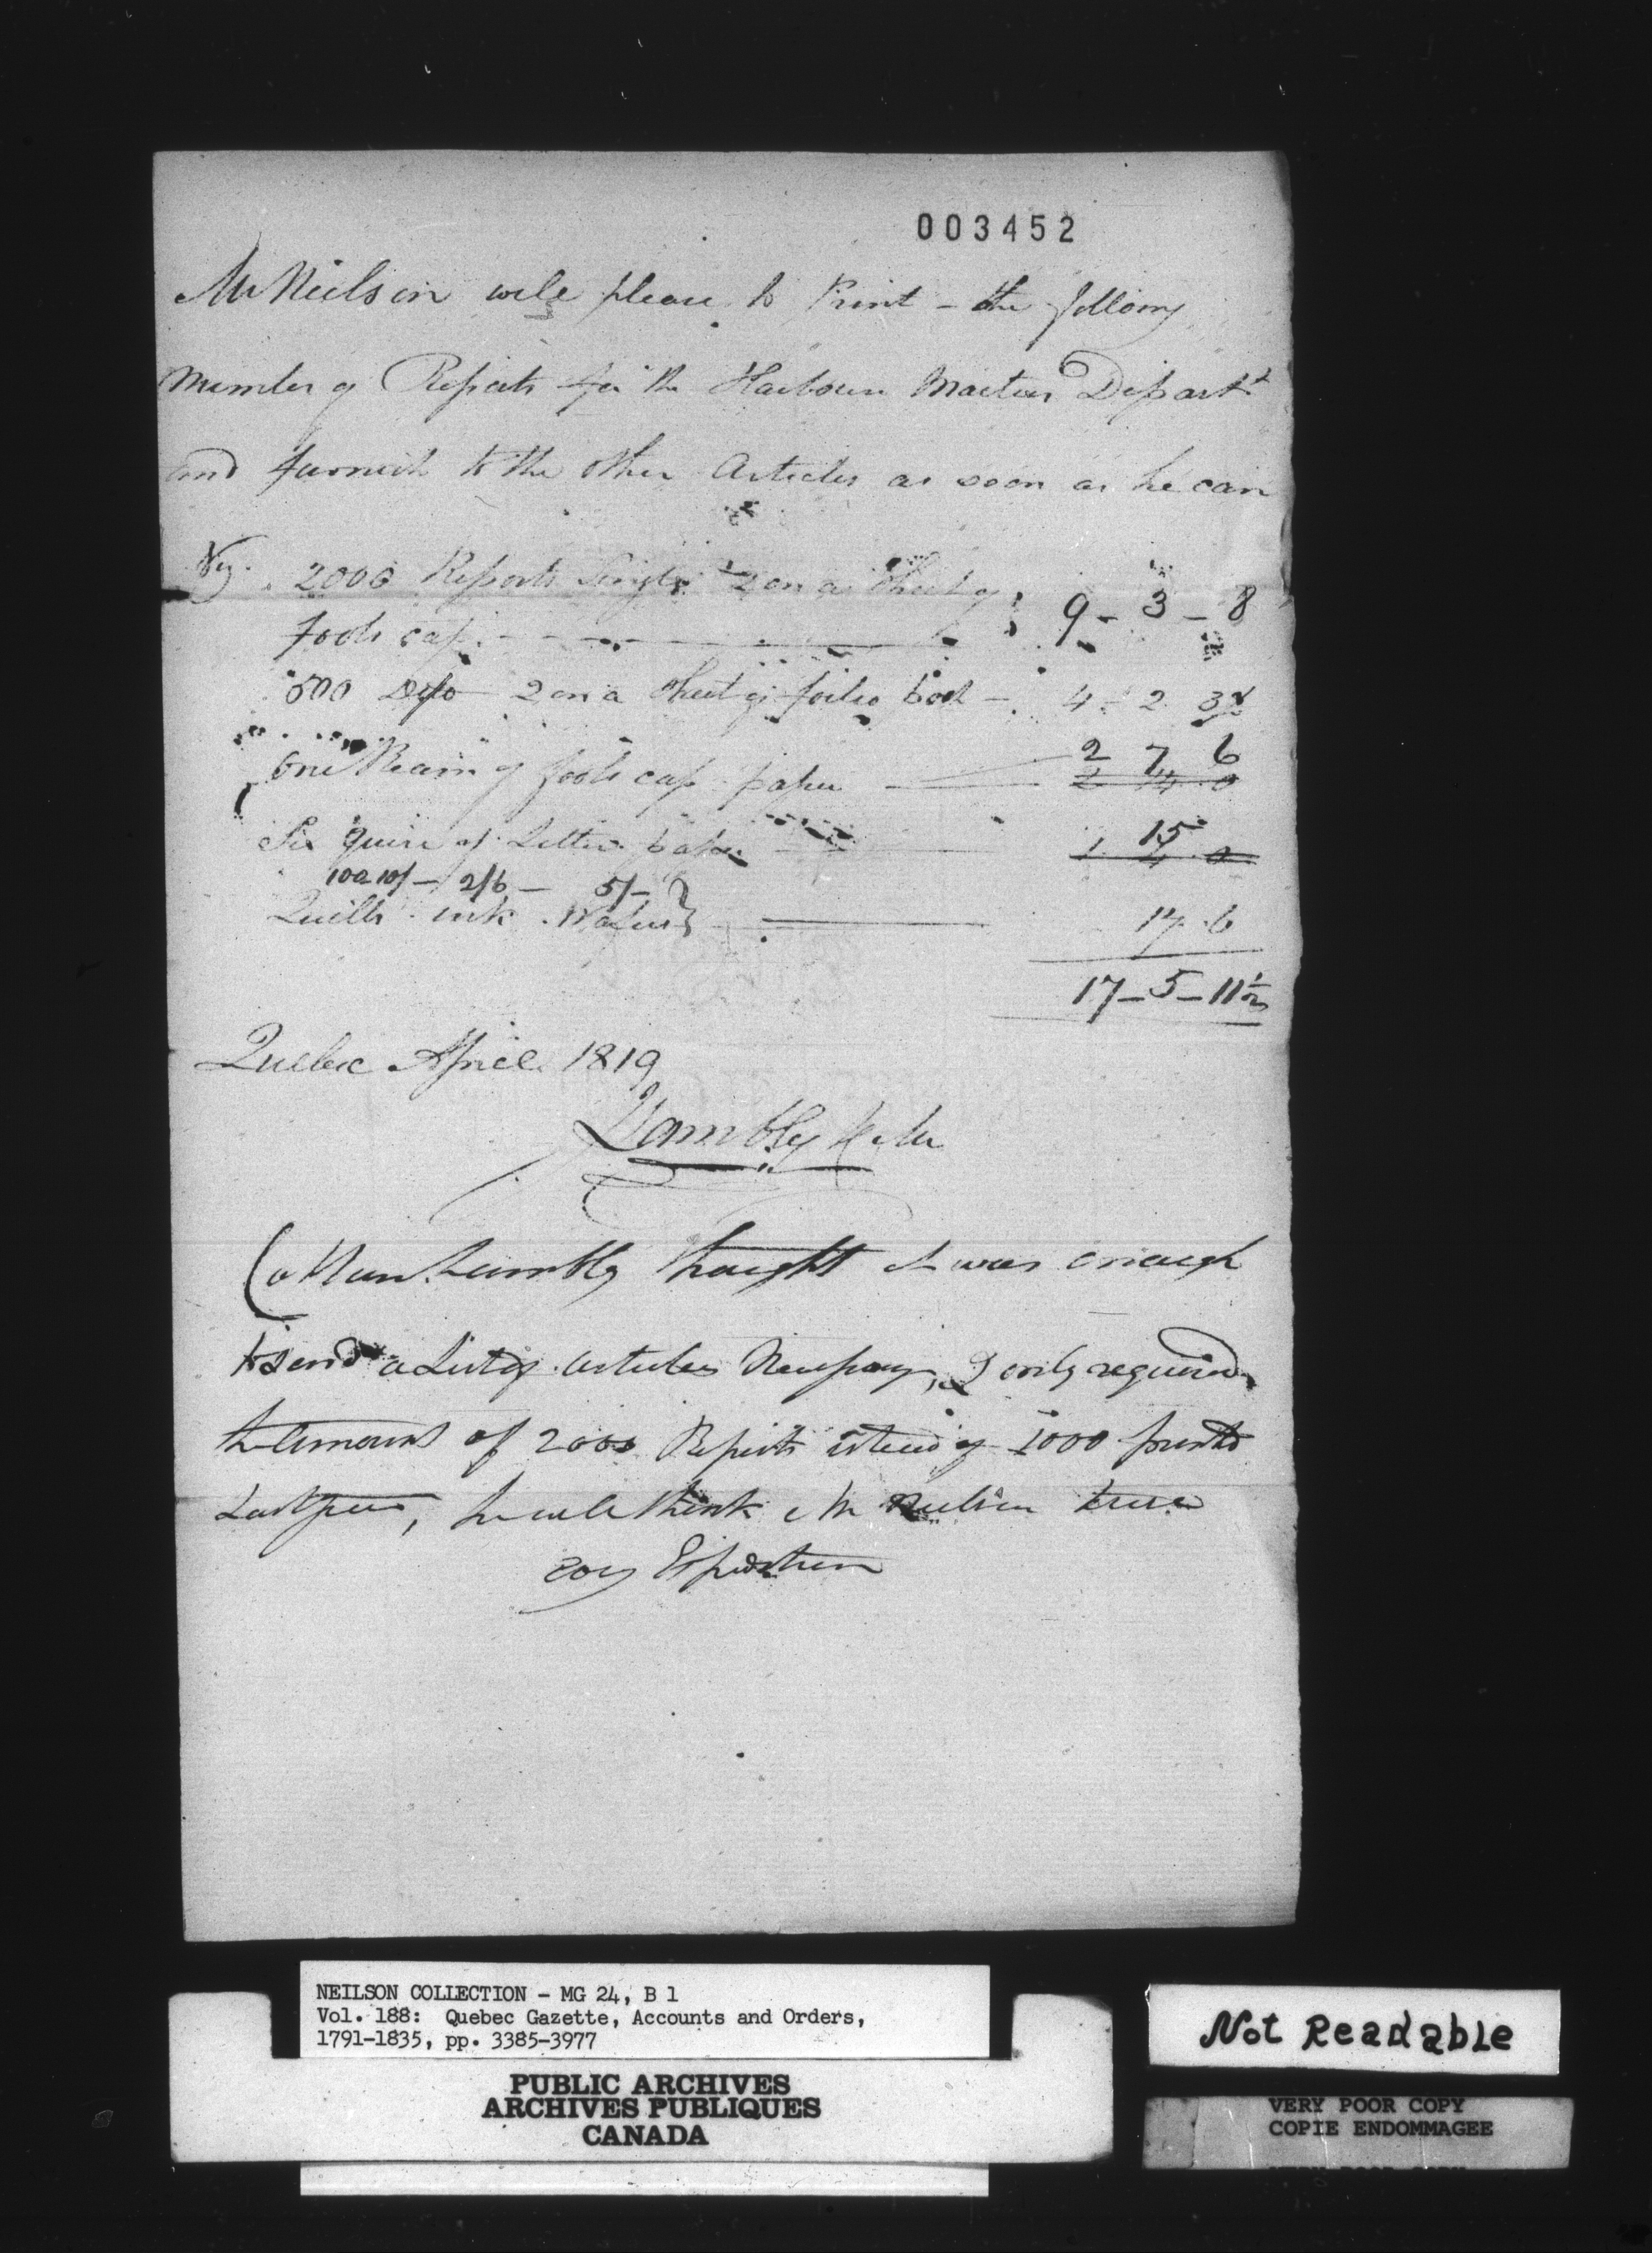 003452
Mr Neilson will please to Print - the following
Number of Reports for the Harbour Masters Depart^t
and furnish to the other Articles as soon as he can
Viz. 2000 Reports Single 2 on a Sheet of
fools cap - 9 - 3 - 8
500 Ditto 2 on a Sheet of folio post - 4 - 2 3½
One Ream of fools cap paper 2 7 6
Six quire of Letter paper 15
100 10/ - 2/6 - 5/-
Quills ink Wafers 17 6
17 - 5 - 11½
Quebec April 1819
Lambly H. Mr
Lambly thought it was enough
to send a List of articles Necessary, I only required
the amount of 2000 Reports instead of 1000 printed
Last year, he will thank Mr Neilson
NEILSON COLLECTION - MG 24, B 1
Vol. 188: Quebec Gazette, Accounts and Orders,
1791-1835, pp. 3385-3977
PUBLIC ARCHIVES
ARCHIVES PUBLIQUES
CANADA
Not Readable
VERY POOR COPY
COPIE ENDOMMAGEE